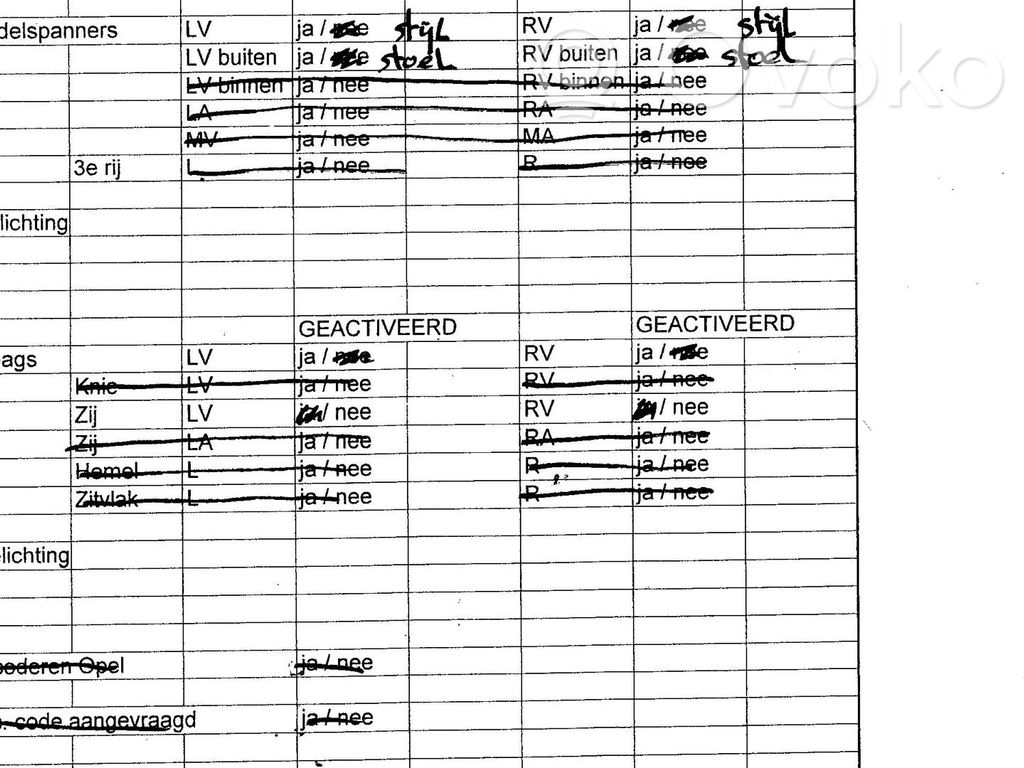 delspanners LV ja / nee stijl RV ja / nee stijl
LV buiten ja / nee stoel RV buiten ja / nee stoel
LV binnen ja / nee RV binnen ja / nee
LA ja / nee RA ja / nee
MV ja / nee MA ja / nee
3e rij L ja / nee R ja / nee
lichting
GEACTIVEERD GEACTIVEERD
ags LV ja / nee RV ja / nee
Knie LV ja / nee RV ja / nee
Zij LV ja / nee RV ja / nee
Zij LA ja / nee RA ja / nee
Hemel L ja / nee R ja / nee
Zitvlak L ja / nee R ja / nee
lichting
oderen Opel ja / nee
. code aangevraagd ja / nee
Ovoko